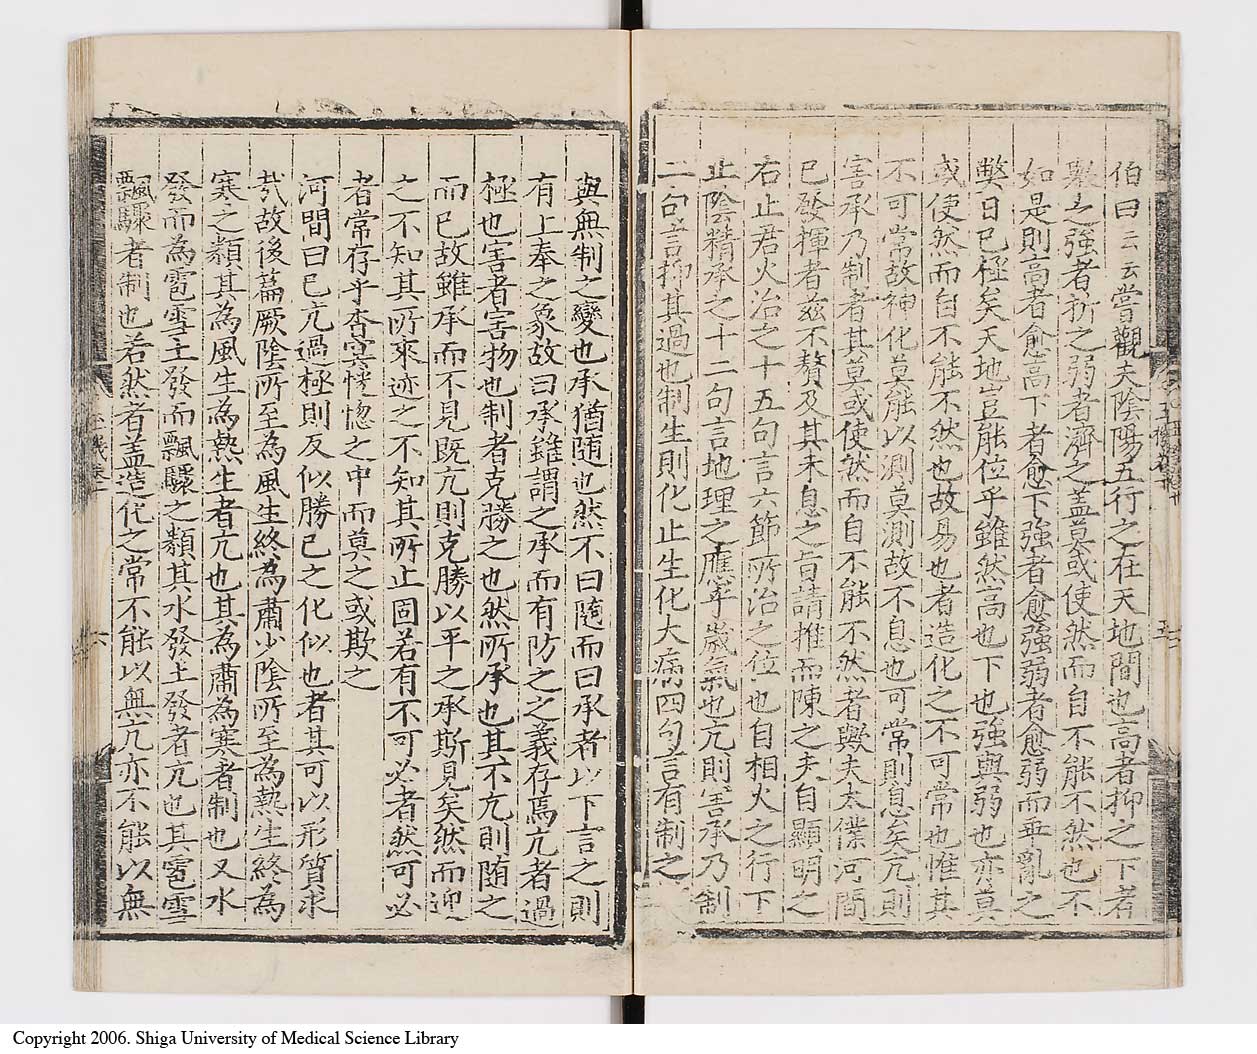 伯曰云云嘗觀夫陰陽五行之在天地間也高者抑之下者
舉之強者折之弱者濟之盖莫或使然而自不能不然也不
如是則高者愈高下者愈下強者愈強弱者愈弱而乖亂之
弊日已極矣天地豈能位乎雖然高也下也強與弱也亦莫
或使然而自不能不然也故易也者造化之不可常也惟其
不可常故神化莫能以測莫測故不息也可常則息矣亢則
害承乃制者其莫或使然而自不能不然者歟夫太僕河間
已發揮者玆不贅及其未息之旨請推而陳之夫自顯明之
右止君火治之十五句言六節所治之位也自相火之行下
止陰精承之十二句言地理之應乎歲氣也亢則害承乃制
二句言抑其過也制生則化止生化大病四句言有制之
與無制之變也承猶随也然不曰隨而曰承者以下言之則
有上奉之象故曰承雖謂之承而有防之之義存焉亢者過
極也害者害物也制者克勝之也然所承也其不亢則随之
而已故雖承而不見既亢則克勝以平之承斯見矣然而迎
之不知其所來迹之不知其所止固若有不可必者然可必
者常存乎杳冥恍惚之中而莫之或欺之
河間曰已亢過極則反似勝已之化似也者其可以形質求
哉故後篇厥陰所至為風生終為肅少陰所至為熱生終為
寒之類其為風生為熱生者亢也其為肅為寒者制也又水
發而為雹雪土發而飄驟之類其水發土發者亢也其雹雪
飄驟者制也若然者盖造化之常不能以無亢亦不能以無
玉機卷十
六